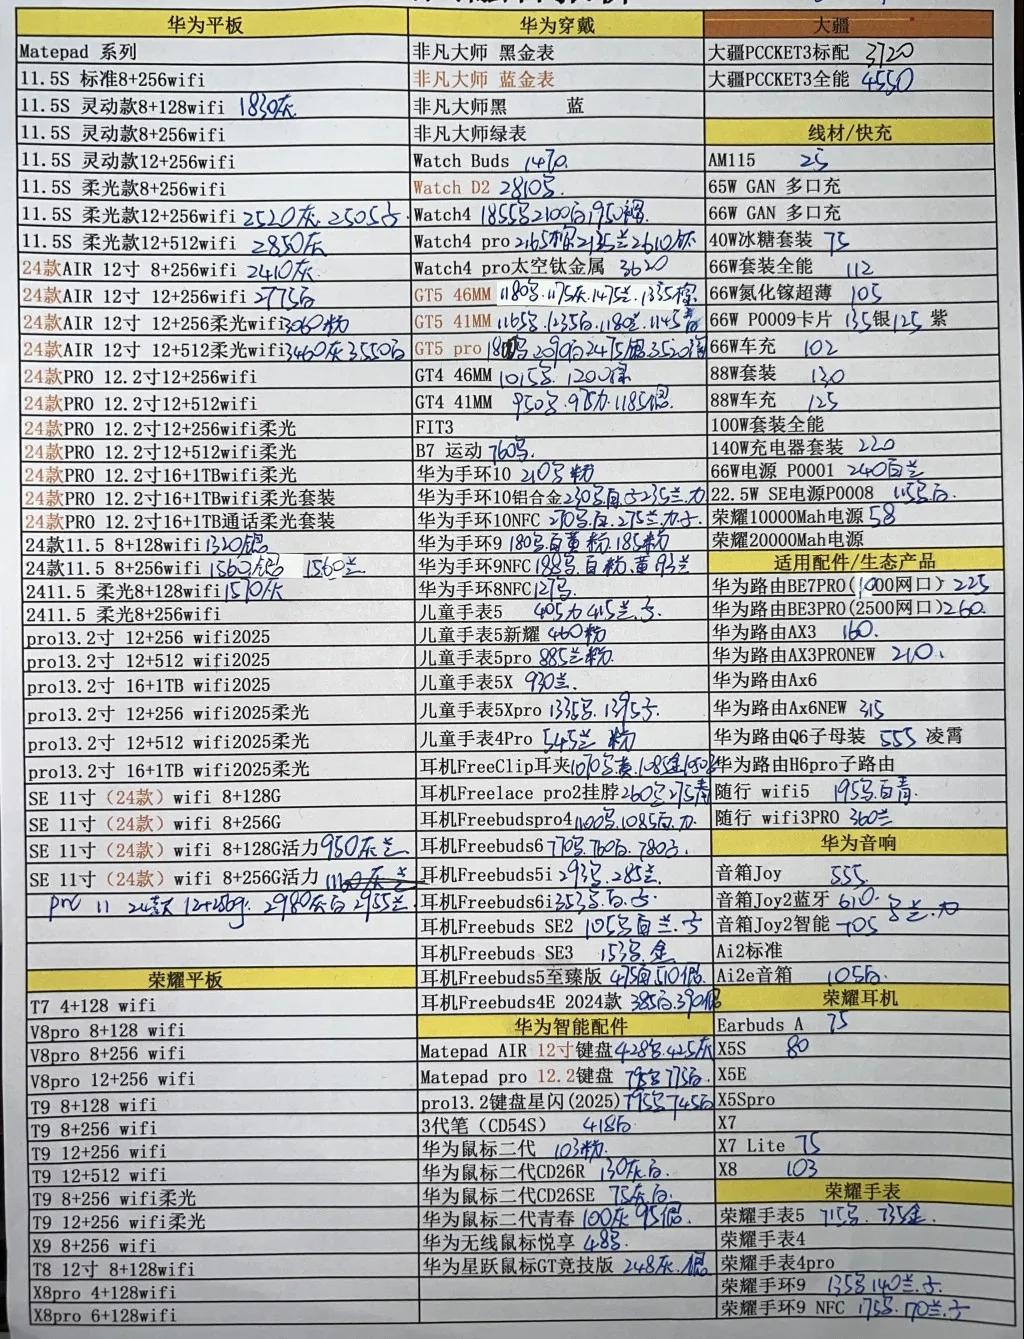 华为平板
Matepad 系列
11.5S 标准8+256wifi
11.5S 灵动款8+128wifi 1830灰
11.5S 灵动款8+256wifi
11.5S 灵动款12+256wifi
11.5S 柔光款8+256wifi
11.5S 柔光款12+256wifi 2520灰. 2505子.
11.5S 柔光款12+512wifi 2850灰
24款AIR 12寸 8+256wifi 2410灰.
24款AIR 12寸 12+256wifi 2775白
24款AIR 12寸 12+256柔光wifi3060粉
24款AIR 12寸 12+512柔光wifi3460灰3550白
24款PRO 12.2寸12+256wifi
24款PRO 12.2寸12+512wifi
24款PRO 12.2寸12+256wifi柔光
24款PRO 12.2寸12+512wifi柔光
24款PRO 12.2寸16+1TBwifi柔光
24款PRO 12.2寸16+1TBwifi柔光套装
24款PRO 12.2寸16+1TB通话柔光套装
24款11.5 8+128wifi 1320
24款11.5 8+256wifi 1560 1560兰
2411.5 柔光8+128wifi 1570灰
2411.5 柔光8+256wifi
pro13.2寸 12+256 wifi2025
pro13.2寸 12+512 wifi2025
pro13.2寸 16+1TB wifi2025
pro13.2寸 12+256 wifi2025柔光
pro13.2寸 12+512 wifi2025柔光
pro13.2寸 16+1TB wifi2025柔光
SE 11寸（24款）wifi 8+128G
SE 11寸（24款）wifi 8+256G
SE 11寸（24款）wifi 8+128G活力 950灰兰
SE 11寸（24款）wifi 8+256G活力
pro 11 24款 12+256g. 2980灰白 2955兰
荣耀平板
T7 4+128 wifi
V8pro 8+128 wifi
V8pro 8+256 wifi
V8pro 12+256 wifi
T9 8+128 wifi
T9 8+256 wifi
T9 12+256 wifi
T9 12+512 wifi
T9 8+256 wifi柔光
T9 12+256 wifi柔光
X9 8+256 wifi
T8 12寸 8+128wifi
X8pro 4+128wifi
X8pro 6+128wifi
华为穿戴
非凡大师 黑金表
非凡大师 蓝金表
非凡大师黑 蓝
非凡大师绿表
Watch Buds 1470.
Watch D2 2810
Watch4 1855 2100白1950
Watch4 pro 2165 2135兰2610
Watch4 pro太空钛金属 3620
GT5 46MM 1180 1175灰.1475兰.1335
GT5 41MM 1165 1235白.1180兰.1145
GT5 pro 2090白2475 3520
GT4 46MM 1015 1200
GT4 41MM 950 975力.1185
FIT3
B7 运动 760
华为手环10 210 粉
华为手环10铝合金230 白子235兰.力
华为手环10NFC 270 白.275兰.力.子
华为手环9 180 白黄 粉.185粉
华为手环9NFC 188 白粉.黄 兰
华为手环8NFC 127
儿童手表5 405力415兰.子
儿童手表5新耀 460粉
儿童手表5pro 885兰粉.
儿童手表5X 930兰.
儿童手表5Xpro 1335 1395子.
儿童手表4Pro 545兰 粉
耳机FreeClip耳夹1070 1085金
耳机Freelace pro2挂脖 260 275青
耳机Freebudspro4 1100 1085白.力
耳机Freebuds6 770 760白. 780子.
耳机Freebuds5i 293 285兰.
耳机Freebuds6i 353 白.子.
耳机Freebuds SE2 105 白兰.子
耳机Freebuds SE3 153 金
耳机Freebuds5至臻版 475 510银.
耳机Freebuds4E 2024款 385白.390
华为智能配件
Matepad AIR 12寸键盘428 425灰
Matepad pro 12.2键盘 795 775白.
pro13.2键盘星闪(2025) 795 745白
3代笔（CD54S） 418白
华为鼠标二代 103粉.
华为鼠标二代CD26R 130灰白.
华为鼠标二代CD26SE 75灰白.
华为鼠标二代青春 100灰 95银.
华为无线鼠标悦享 48
华为星跃鼠标GT竞技版 248灰.银
大疆
大疆PCCKET3标配 3720
大疆PCCKET3全能 4550
线材/快充
AM115 25
65W GAN 多口充
66W GAN 多口充
40W冰糖套装 75
66W套装全能 112
66W氮化镓超薄 105
66W P0009卡片 135银125 紫
66W车充 102
88W套装 130
88W车充 125
100W套装全能
140W充电器套装 220
66W电源 P0001 240白兰
22.5W SE电源P0008 115 白.
荣耀10000Mah电源 58
荣耀20000Mah电源
适用配件/生态产品
华为路由BE7PRO(1000网口) 225
华为路由BE3PRO(2500网口)260.
华为路由AX3 160.
华为路由AX3PRONEW 210.
华为路由Ax6
华为路由Ax6NEW 315
华为路由Q6子母装 555 凌霄
华为路由H6pro子路由
随行 wifi5 195 白青.
随行 wifi3PRO 360兰
华为音响
音箱Joy 555.
音箱Joy2蓝牙 610.
音箱Joy2智能 705 兰.力
Ai2标准
Ai2e音箱 105白.
荣耀耳机
Earbuds A 75
X5S 80
X5E
X5Spro
X7
X7 Lite 75
X8 103
荣耀手表
荣耀手表5 715 735金.
荣耀手表4
荣耀手表4pro
荣耀手环9 135 140兰.子
荣耀手环9 NFC 175 170兰.子